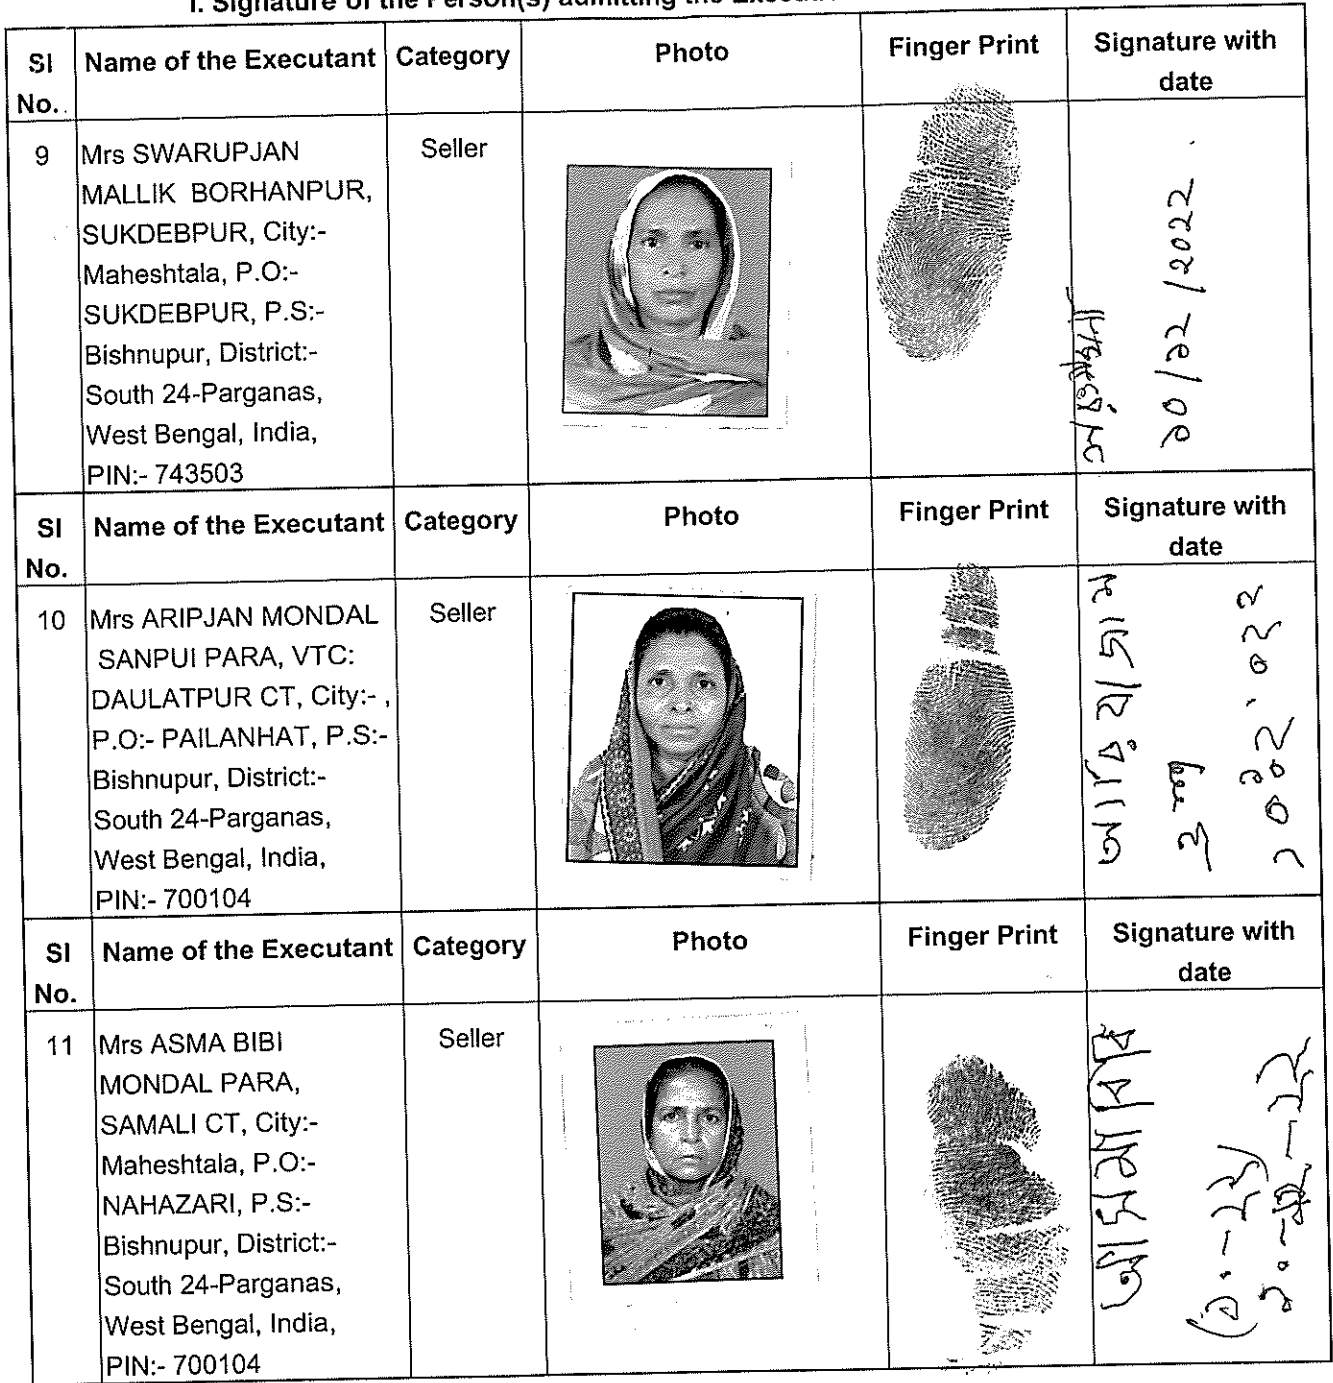 I. Signature of the Person(s) admitting the
Sl No. Name of the Executant Category Photo Finger Print Signature with date
9 Mrs SWARUPJAN Seller
MALLIK BORHANPUR,
SUKDEBPUR, City:-
Maheshtala, P.O:-
SUKDEBPUR, P.S:-
Bishnupur, District:-
South 24-Parganas,
West Bengal, India,
PIN:- 743503
Sl No. Name of the Executant Category Photo Finger Print Signature with date
10 Mrs ARIPJAN MONDAL Seller
SANPUI PARA, VTC:
DAULATPUR CT, City:- ,
P.O:- PAILANHAT, P.S:-
Bishnupur, District:-
South 24-Parganas,
West Bengal, India,
PIN:- 700104
Sl No. Name of the Executant Category Photo Finger Print Signature with date
11 Mrs ASMA BIBI Seller
MONDAL PARA,
SAMALI CT, City:-
Maheshtala, P.O:-
NAHAZARI, P.S:-
Bishnupur, District:-
South 24-Parganas,
West Bengal, India,
PIN:- 700104